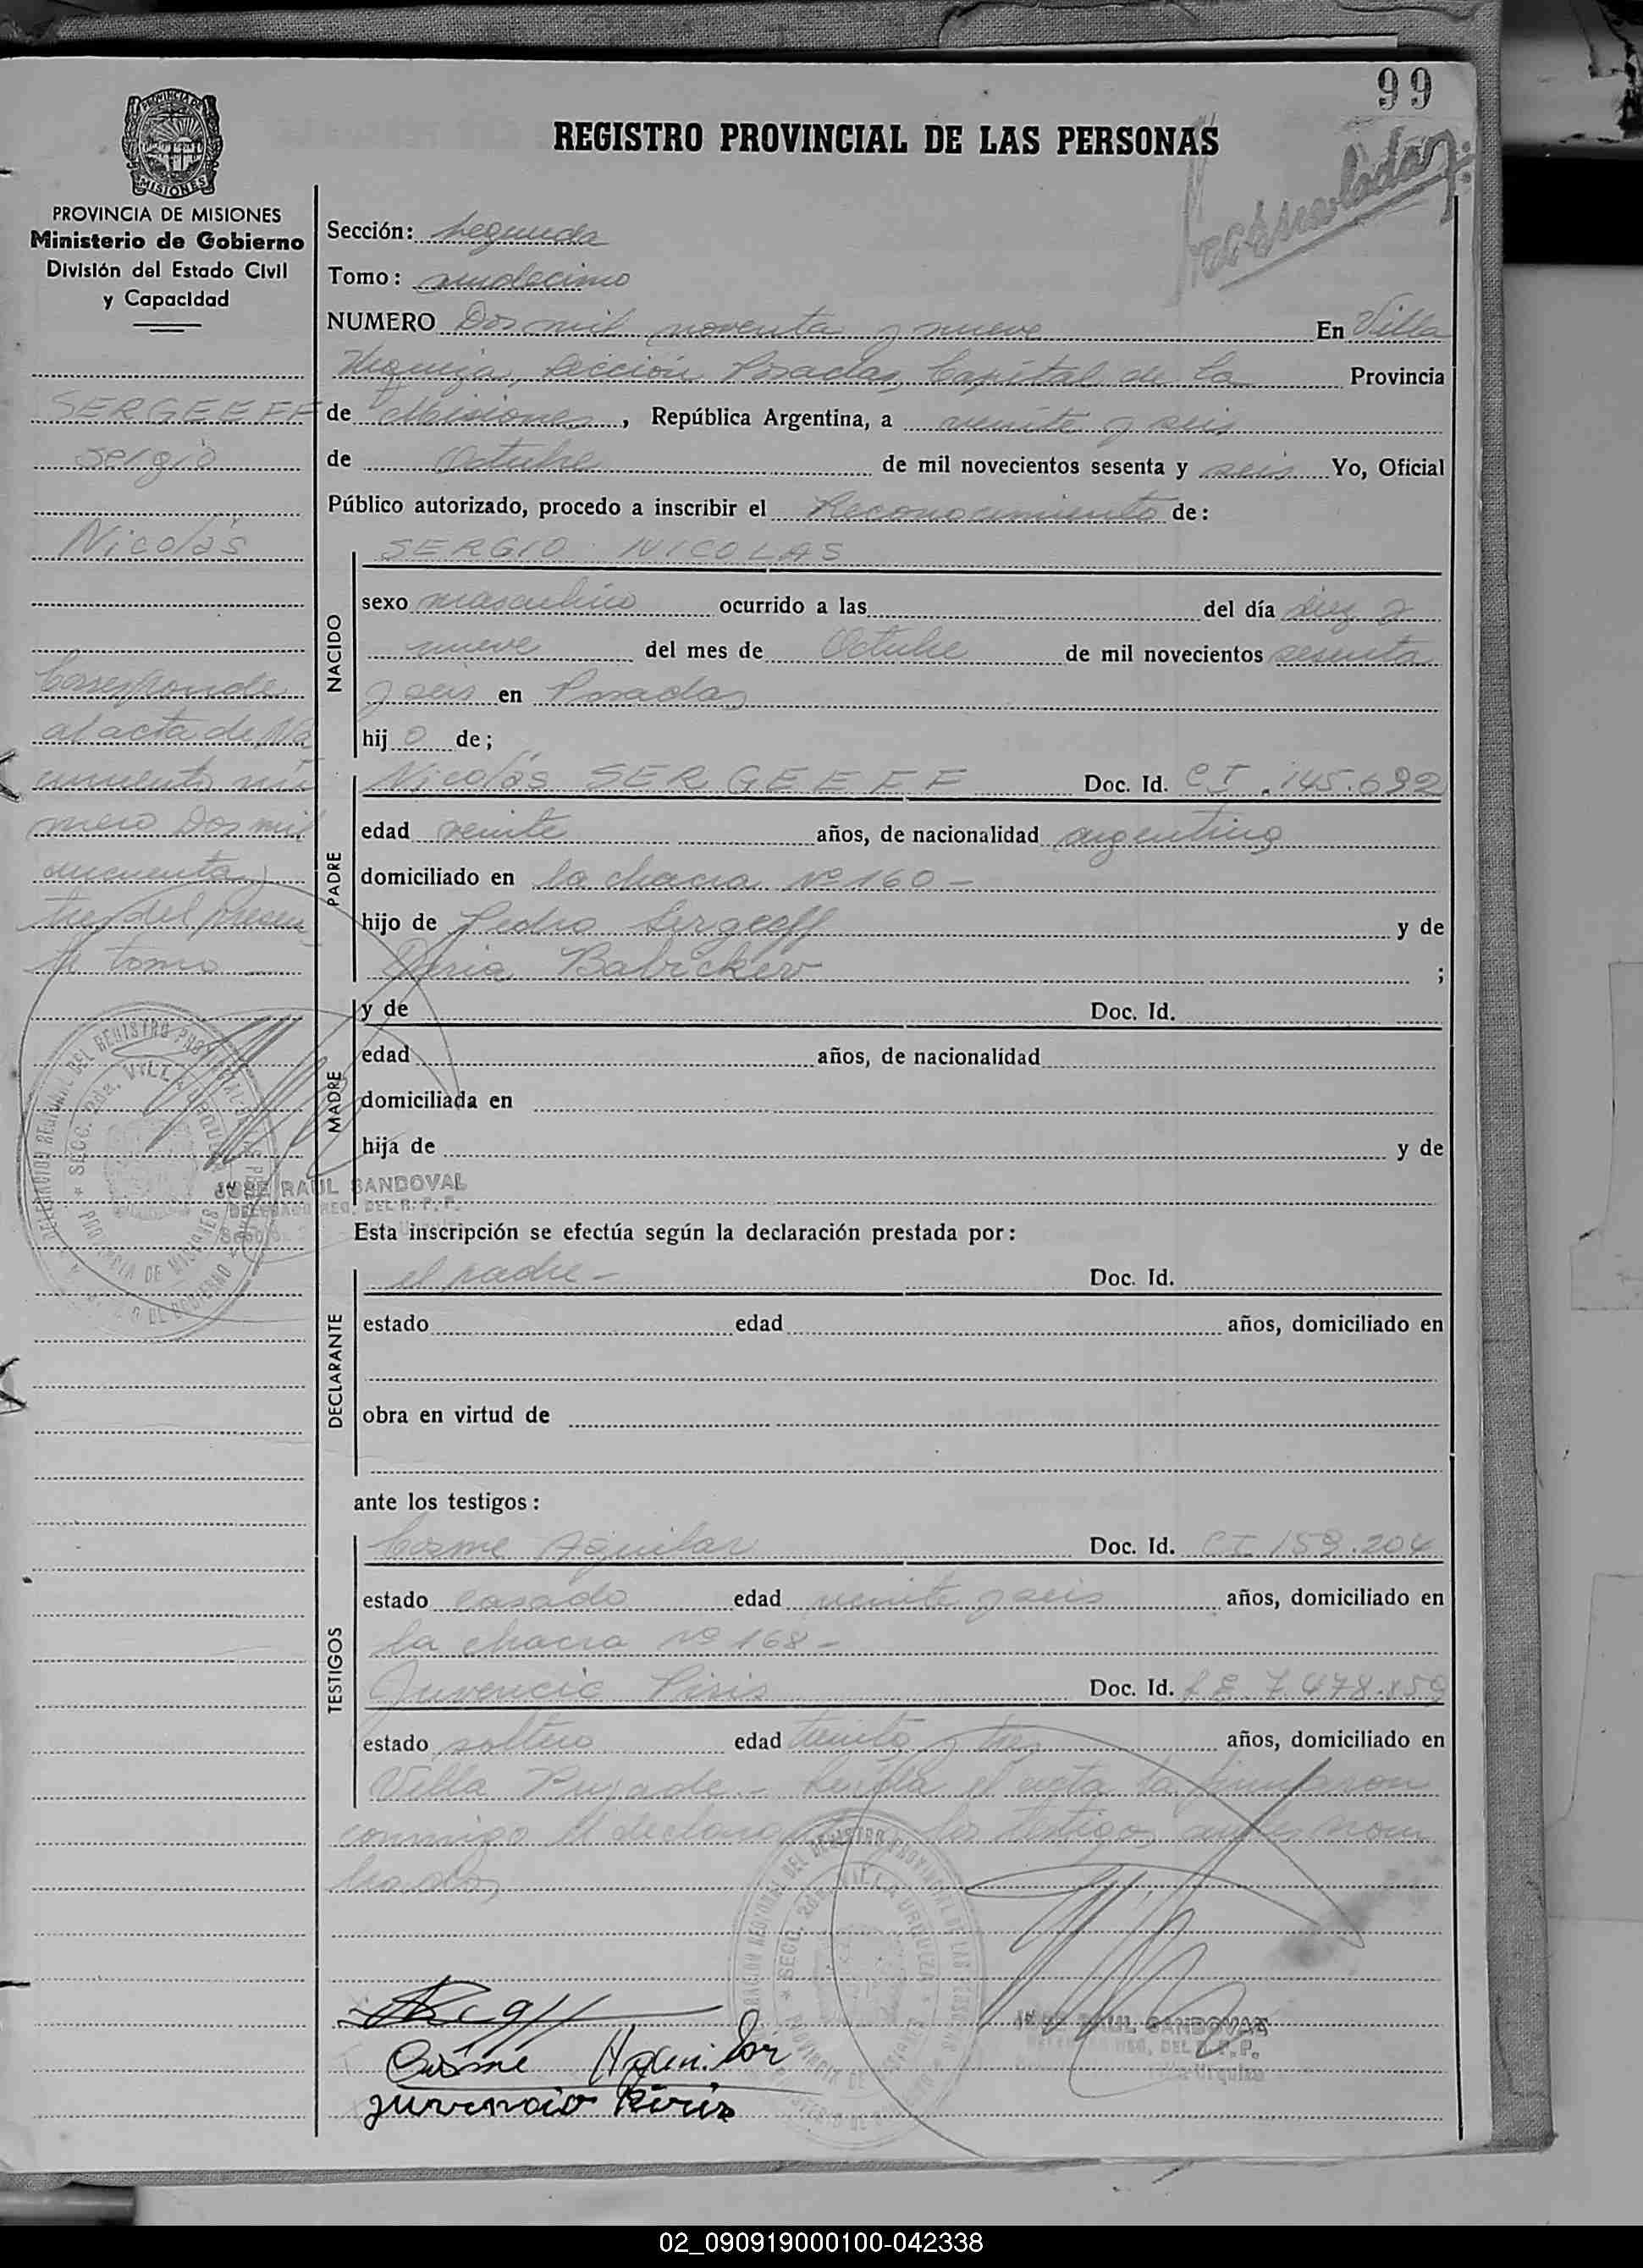 99
REGISTRO PROVINCIAL DE LAS PERSONAS
PROVINCIA DE MISIONES
Ministerio de Gobierno
División del Estado Civil
y Capacidad
SERGEEFF
Sergio
Nicolás
Corresponde
al acta de Na
cimiento nú
mero Dos mil
cincuenta y
tres del presen
te tomo
Sección: Segunda
Tomo: undecimo
NUMERO Dos mil noventa y nueve En Villa
Urquiza, Sección Posadas, Capital de la Provincia
de Misiones, República Argentina, a veinte y seis
de Octubre de mil novecientos sesenta y seis Yo, Oficial
Público autorizado, procedo a inscribir el Reconocimiento de:
SERGIO NICOLAS
NACIDO
sexo masculino ocurrido a las del día diez y
nueve del mes de Octubre de mil novecientos sesenta
y seis en Posadas
hijo de;
PADRE
Nicolás SERGEEFF Doc. Id. CI. 145.692
edad veinte años, de nacionalidad argentino
domiciliado en la chacra Nº 160 -
hijo de Pedro Sergeeff y de
Babickew ;
MADRE
y de Doc. Id.
edad años, de nacionalidad
domiciliada en
hija de y de
JOSE RAUL SANDOVAL
DELEGADO REG. DEL R. P. P.
Esta inscripción se efectúa según la declaración prestada por:
DECLARANTE
el padre - Doc. Id.
estado edad años, domiciliado en
obra en virtud de
ante los testigos:
TESTIGOS
Cosme Aguilar Doc. Id. CI 159.204
estado casado edad veinte y seis años, domiciliado en
la chacra Nº 168 -
Juvencio Piris Doc. Id. L E 7.478.159
estado soltero edad treinta y tres años, domiciliado en
Villa Pujade - Leída el acta la firmaron
conmigo el declarante y los testigos antes nom
brados
Cosme Aguilar
Juvencio Piris
JOSE RAUL SANDOVAL
DELEGADO REG. DEL R. P. P.
Villa Urquiza
02_090919000100-042338